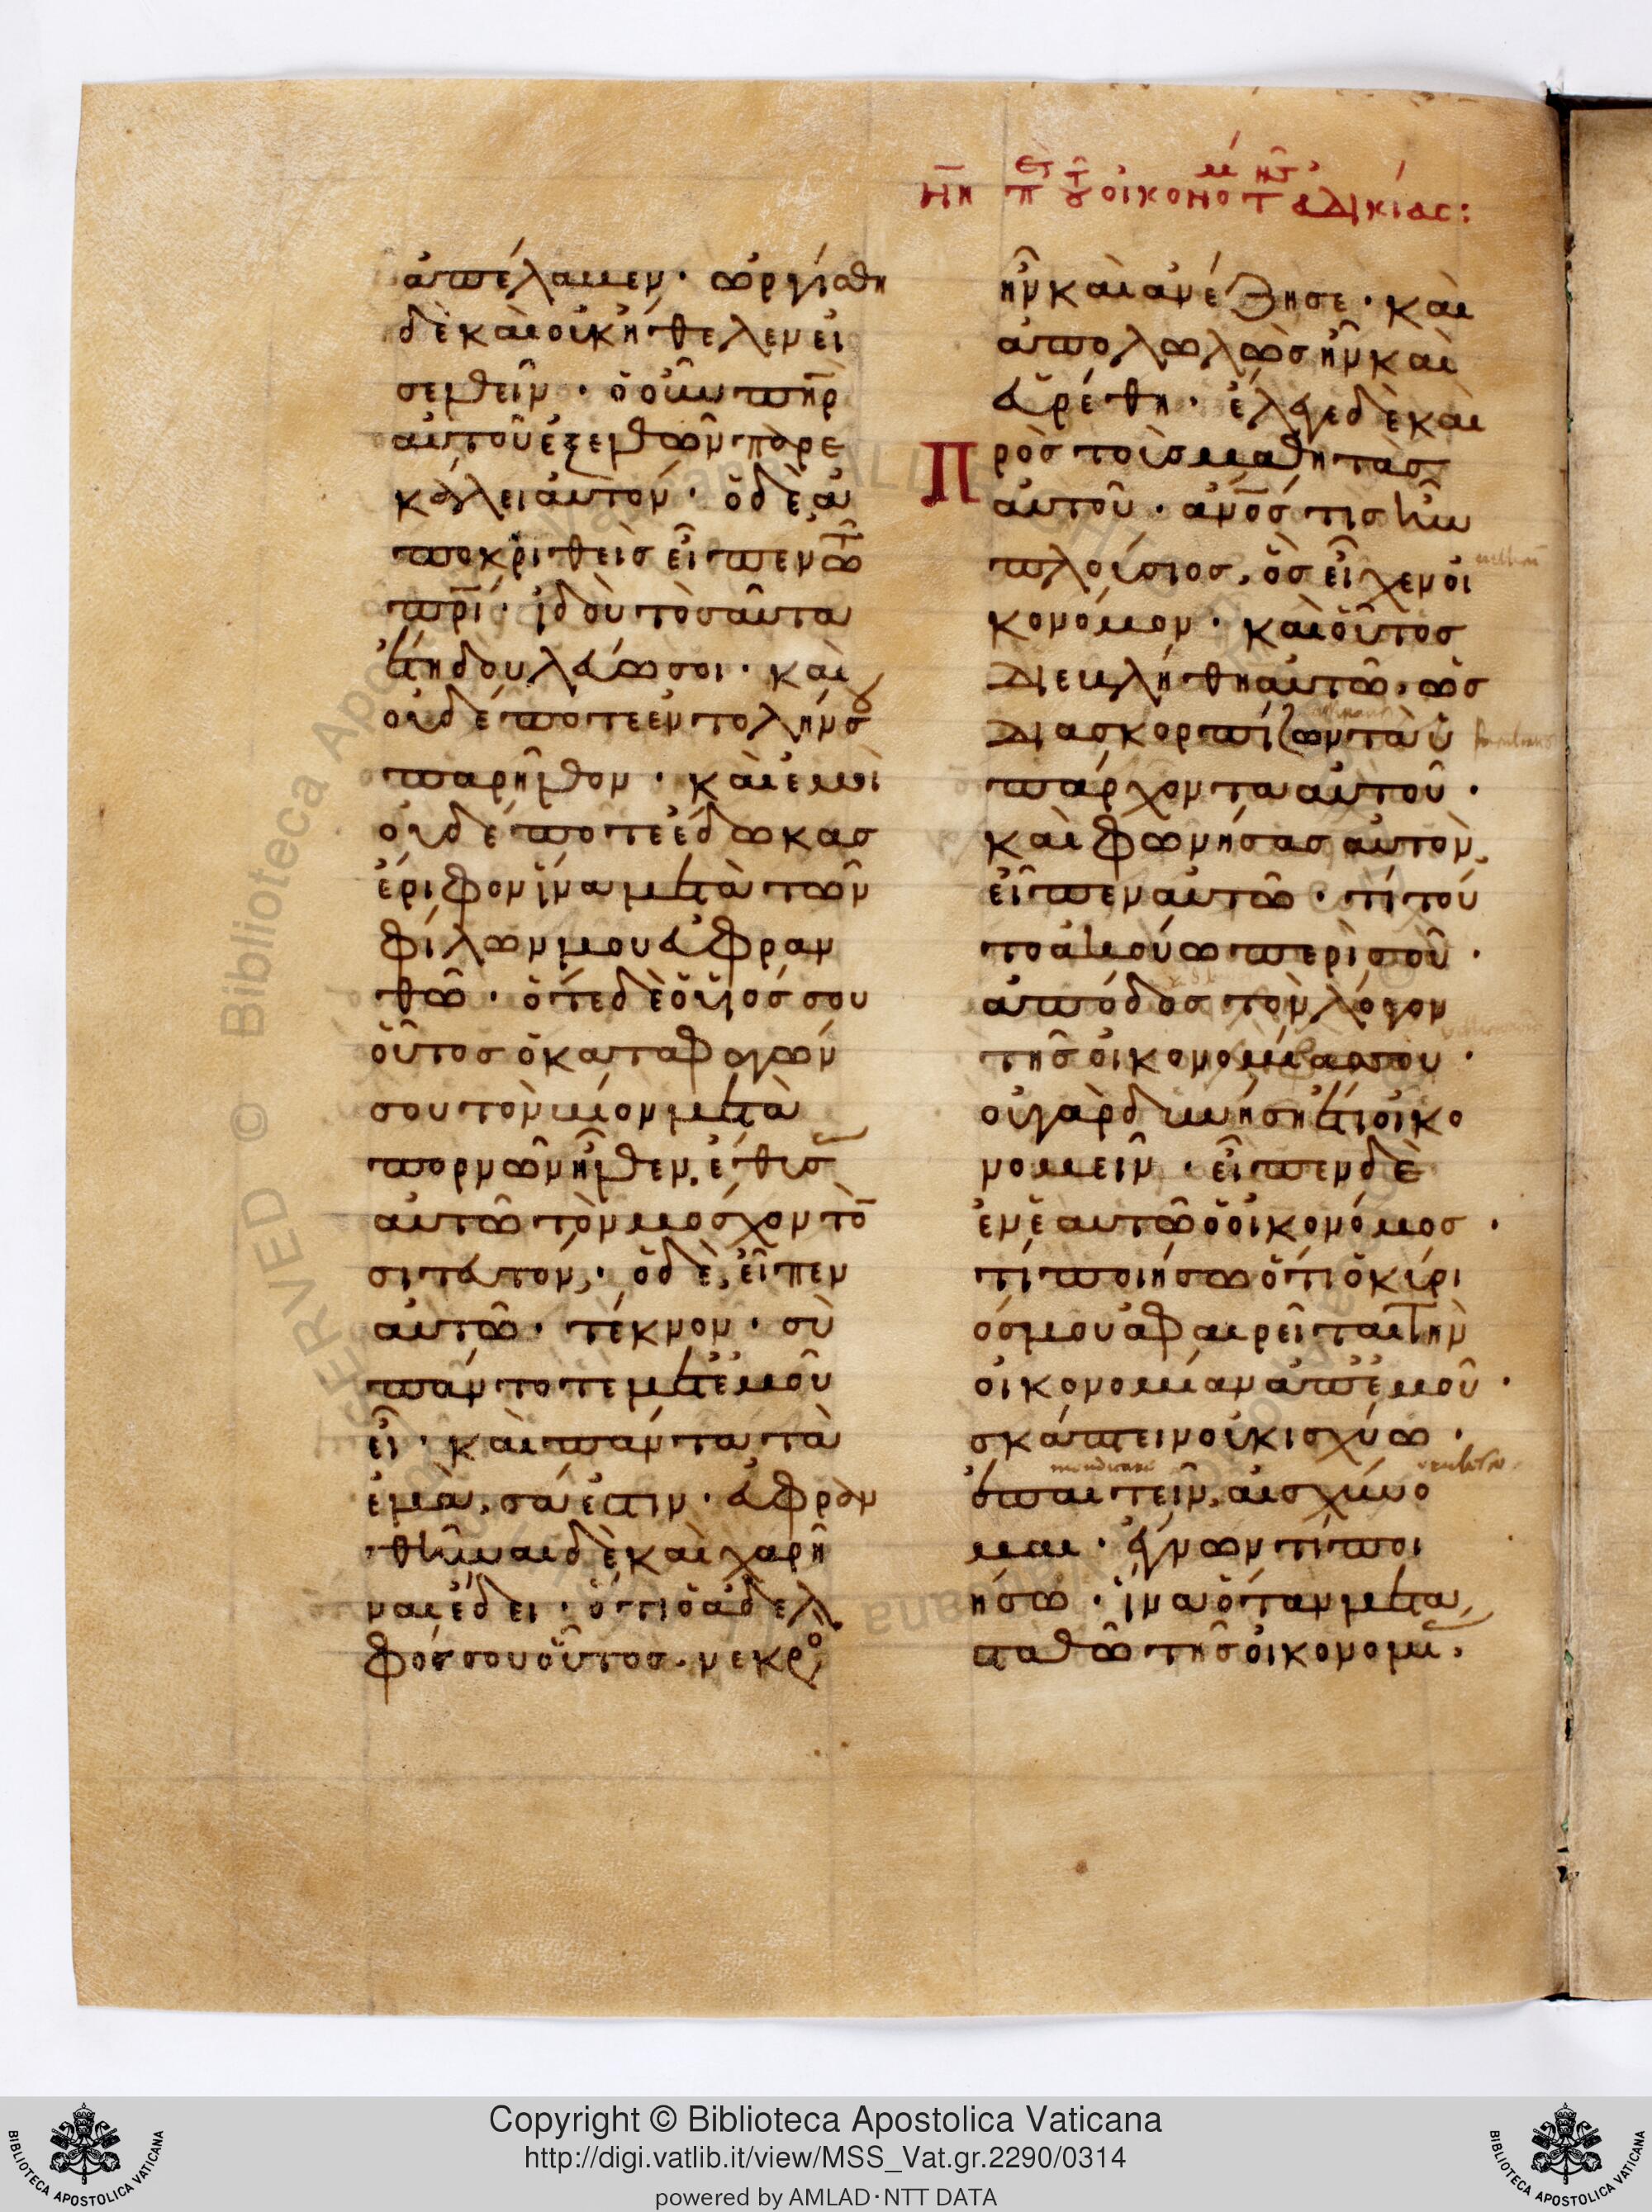 ἀπέλαβεν · ὠργίσθη
δὲ καὶ οὐκ ἤθελεν εἰ
σελθεῖν · ὁ οὖν πηρ
αὐτοῦ ἐξελθὼν παρε
κάλει αὐτόν · ὁ δὲ ἀ
ποκριθεὶς εἶπεν τῶ
πρί · ἰδοὺ τοσαῦτα
ἔτη δουλεύω σοι · καὶ
οὐδέποτε ἐντολήν σου
παρῆλθον · καὶ ἐμοὶ
οὐδέποτε ἔδωκας
ἔριφον ἵνα μετὰ τῶν
φίλων μου εὐφραν
θῶ · ὅτε δὲ ὁ υἱός σου
οὗτος ὁ καταφαγών
σου τὸν βίον μετὰ
πορνῶν ἦλθεν, ἔθυσας
αὐτῶ τὸν μόσχον τὸν
σιτευτόν · ὁ δὲ εἶπεν
αὐτῶ · τέκνον · σὺ
πάντοτε μετ' ἐμοῦ
εἶ · καὶ πάντα τὰ
ἐμὰ, σά ἐστιν · εὐφραν
θῆναι δὲ καὶ χαρῆ
ναι ἔδει · ὅτι ὁ ἀδελ
φός σου οὗτος · νεκρὸς
ΜΗ ΕΤ Π ΤΟΥ ΟΙΚΟΝΟΜ ΤΗΣ ΑΔΙΚΙΑΣ :
ἦν καὶ ἀνέζησε · καὶ
ἀπολωλὼς ἦν καὶ
εὑρέθη · ἔλεγε δὲ καὶ
Πρὸς τοὺς μαθητὰς
αὐτοῦ · ἄνος τις ἦν
πλούσιος, ὃς εἶχεν οἰ
κονόμον · καὶ οὗτος
διεβλήθη αὐτῶ, ὡς
διασκορπίζων τὰ ὑ
πάρχοντα αὐτοῦ ·
καὶ φωνήσας αὐτὸν,
εἶπεν αὐτῶ · τί τοῦ
το ἀκούω περὶ σοῦ ·
ἀπόδος τὸν λόγον
τῆς οἰκονομίας σου ·
οὐ γὰρ δυνήση ἔτι οἰκο
νομεῖν · εἶπεν δὲ
ἐν ἑαυτῶ ὁ οἰκονόμος ·
τί ποιήσω ὅτι ὁ κύρι
ός μου ἀφαιρεῖται τὴν
οἰκονομίαν ἀπ' ἐμοῦ ·
σκάπτειν οὐκ ισχύω ·
ἐπαιτεῖν, αἰσχύνο
μαι · ἔγνων τί ποι
ήσω · ἵνα ὅταν μετα
σταθῶ τῆς οἰκονομίας,
mendicare
© Biblioteca Apostolica Vaticana
Copyright © Biblioteca Apostolica Vaticana
http://digi.vatlib.it/view/MSS_Vat.gr.2290/0314
powered by AMLAD·NTT DATA
BIBLIOTECA APOSTOLICA VATICANA
BIBLIOTECA APOSTOLICA VATICANA